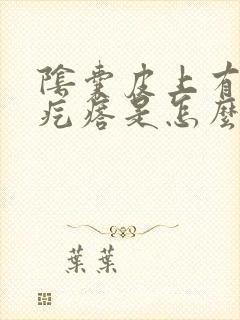 陰囊皮上有
疙瘩是怎麼
葉葉